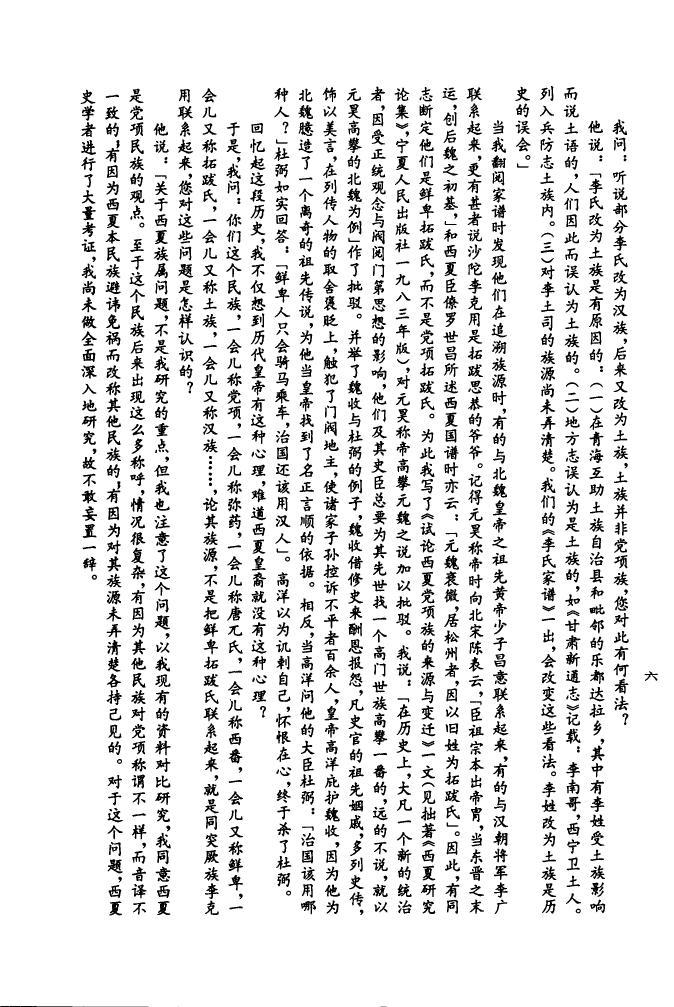 六
我问：听说部分李氏改为汉族，后来又改为土族，土族并非党项族，您对此有何看法？
他说：「李氏改为土族是有原因的：（一）在青海互助土族自治县和毗邻的乐都达拉乡，其中有李姓受土族影响
而说土语的，人们因此而误认为土族的。（二）地方志误认为是土族的，如《甘肃新通志》记载：李南哥，西宁卫土人。
列入兵防志土族内。（三）对李土司的族源尚未弄清楚。我们的《李氏家谱》一出，会改变这些看法。李姓改为土族是历
史的误会。」
当我翻阅家谱时发现他们在追溯族源时，有的与北魏皇帝之祖先黄帝少子昌意联系起来，有的与汉朝将军李广
联系起来，更有甚者说沙陀李克用是拓跋思恭的爷爷。记得元昊称帝时向北宋陈表云，「臣祖宗本出帝胄，当东晋之末
运，创后魏之初基，」和西夏臣僚罗世昌所述西夏国谱时亦云：「元魏衰微，居松州者，因以旧姓为拓跋氏」。因此，有同
志断定他们是鲜卑拓跋氏，而不是党项拓跋氏。为此我写了《试论西夏党项族的来源与变迁》一文（见拙著《西夏研究
论集》，宁夏人民出版社一九八三年版），对元昊称帝高攀元魏之说加以批驳。我说：「在历史上，大凡一个新的统治
者，因受正统观念与阀阅门第思想的影响，他们及其史臣总要为其先世找一个高门世族高攀一番的，远的不说，就以
元昊高攀的北魏为例」作了批驳。并举了魏收与杜弼的例子，魏收借修史来酬恩报怨，凡史官的祖先姻戚，多列史传，
饰以美言，在列传人物的取舍褒贬上，触犯了门阀地主，使诸家子孙控诉不平者百余人，皇帝高洋庇护魏收，因为他为
北魏臆造了一个离奇的祖先传说，为他当皇帝找到了名正言顺的依据。相反，当高洋问他的大臣杜弼：「治国该用哪
种人？」杜弼如实回答：「鲜卑人只会骑马乘车，治国还该用汉人」。高洋以为讥刺自己，怀恨在心，终于杀了杜弼。
回忆起这段历史，我不仅想到历代皇帝有这种心理，难道西夏皇裔就没有这种心理？
于是，我问：你们这个民族，一会儿称党项，一会儿称弥药，一会儿称唐兀氏，一会儿称西番，一会儿又称鲜卑，一
会儿又称拓跋氏，一会儿又称土族，一会儿又称汉族……，论其族源，不是把鲜卑拓跋氏联系起来，就是同突厥族李克
用联系起来，您对这些问题是怎样认识的？
他说：「关于西夏族属问题，不是我研究的重点，但我也注意了这个问题，以我现有的资料对比研究，我同意西夏
是党项民族的观点。至于这个民族后来出现这么多称呼，情况很复杂，有因为其他民族对党项称谓不一样，而音译不
一致的；有因为西夏本民族避讳免祸而改称其他民族的；有因为对其族源未弄清楚各持己见的。对于这个问题，西夏
史学者进行了大量考证，我尚未做全面深入地研究，故不敢妄置一辞。